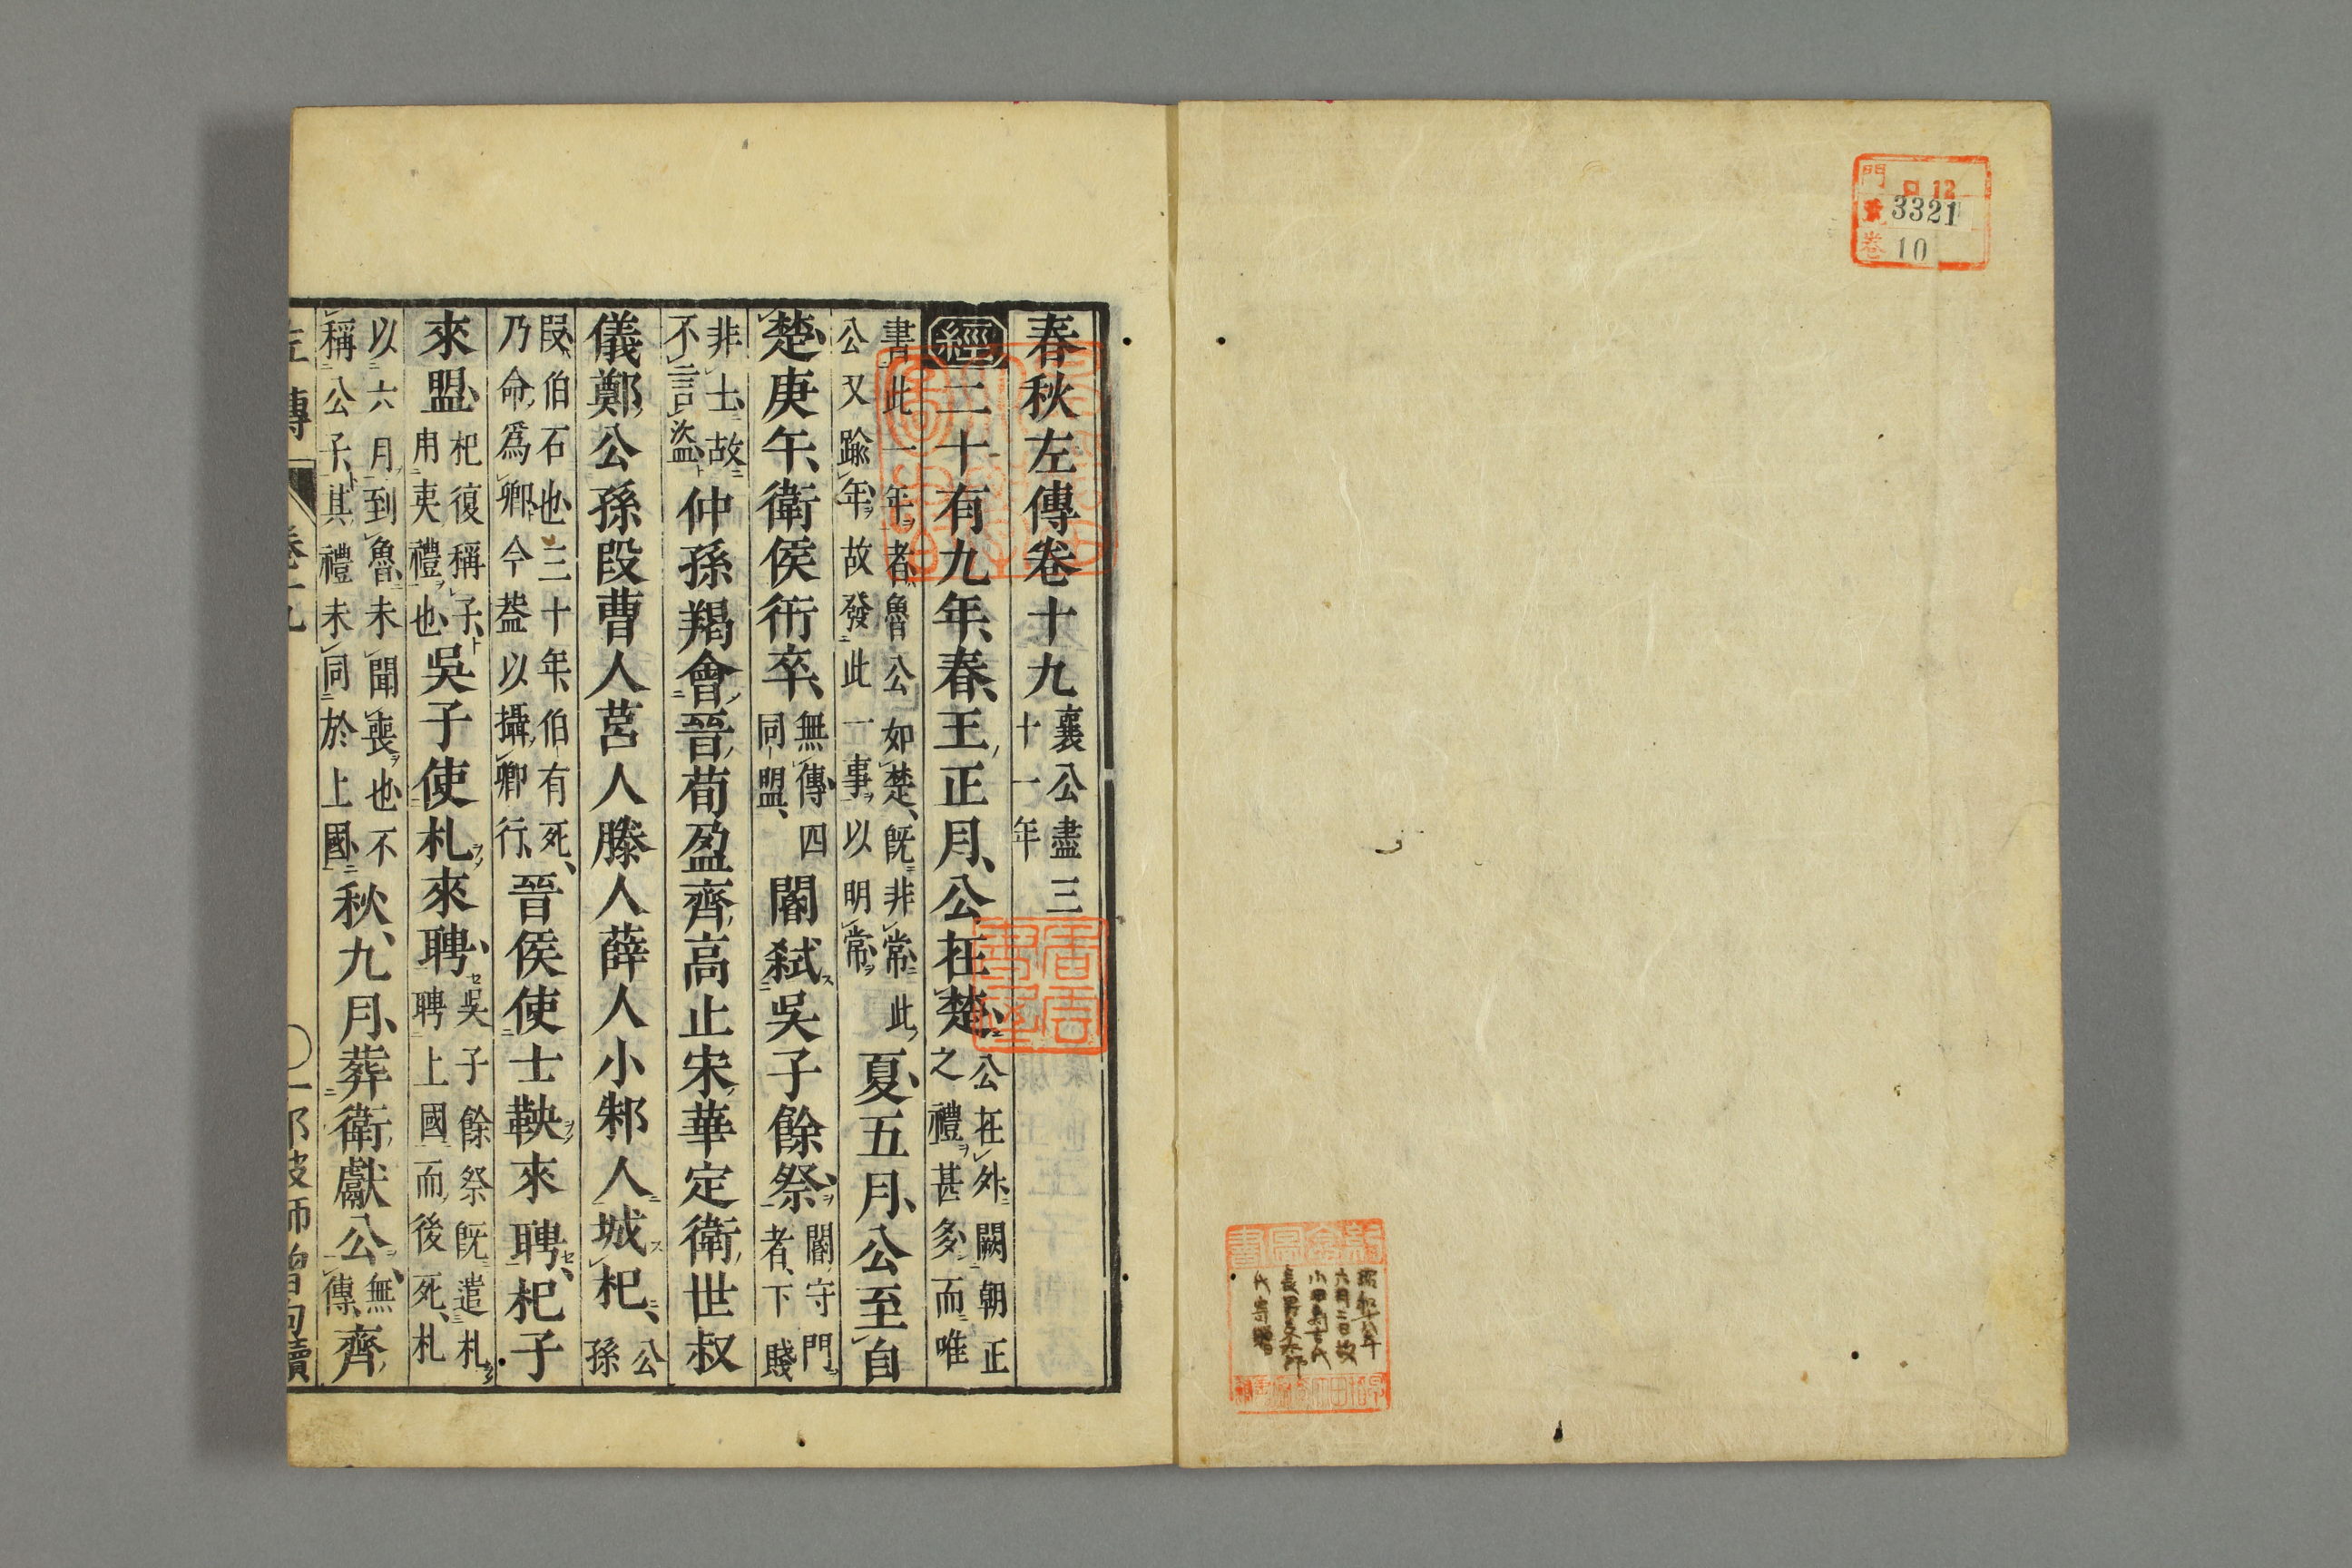 門 ロ12
號 3321
巻 10
昭和十八年
六月二日故
小田島吉氏
氏寄贈
春秋左傳卷十九 襄公盡三十一年
經二十有九年、春、王正月、公在楚、公在外闕朝正之禮甚多而唯
書此一年者魯公如楚、旣非常此公又踰年、故發此一事以明常 夏五月、公至自
楚、庚午、衛侯衎卒、無傳四同盟、閽弑吳子餘祭、閽守門者、下賤
非士、故不言盜 仲孫羯會晉荀盈齊高止宋華定衛世叔
儀鄭公孫段曹人莒人滕人薛人小邾人城杞、公孫
段伯石也三十年、伯有死、乃命爲卿今葢以攝卿行、晉侯使士鞅來聘、杞子
來盟、杞復稱子、用夷禮也 吳子使札來聘、吳子餘祭旣遣札聘上國而後死、札
以六月到魯未聞喪也不稱公子、其禮未同於上國 秋、九月、葬衛獻公、無傳 齊
左傳 卷十九 〇一 那波師曾句讀